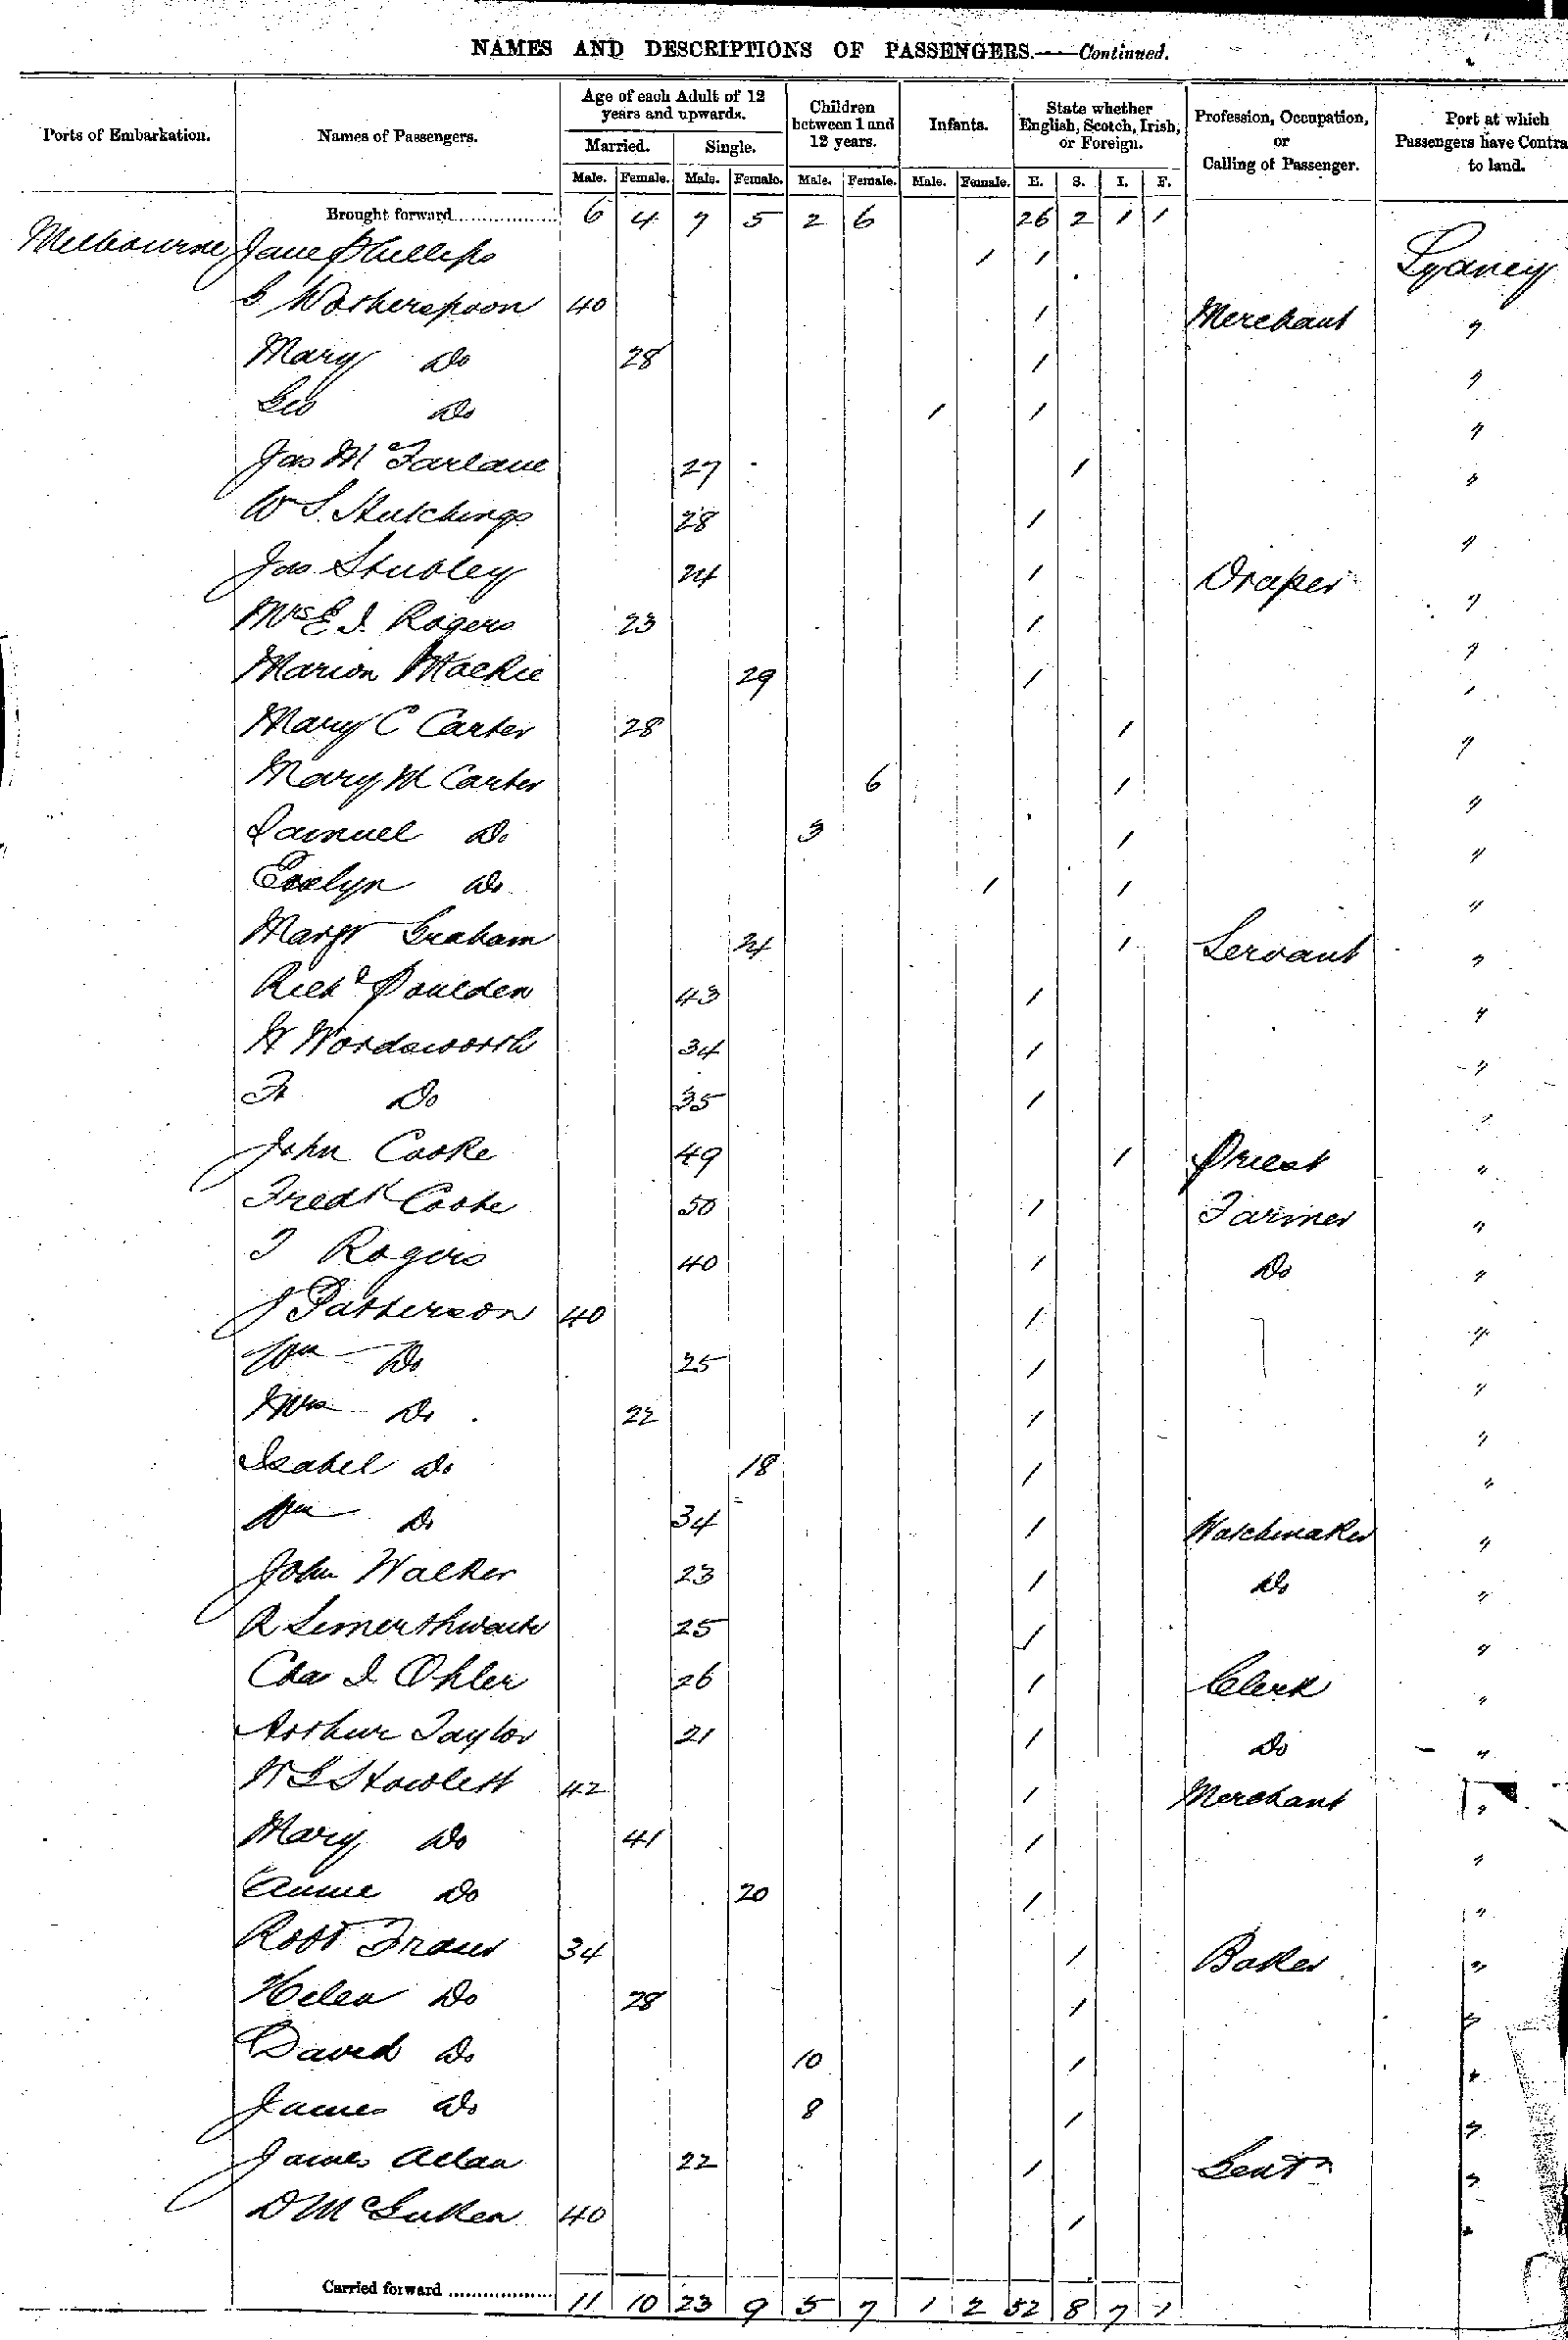 NAMES AND DESCRIPTIONS OF PASSENGERS.—Continued.
Ports of Embarkation. Names of Passengers. Age of each Adult of 12 years and upwards. Children between 1 and 12 years. Infants. State whether English, Scotch, Irish, or Foreign. Profession, Occupation, or Calling of Passenger. Port at which Passengers have Contra to land.
Married. Single.
Male. Female. Male. Female. Male. Female. Male. Female. E. S. I. F.
Brought forward 6 4 7 5 2 6 26 2 1 1
Melbourne Jane Phillips 1 1 Sydney
G Wotherspoon 40 1 Merchant "
Mary Do 28 1 "
Geo Do 1 1 "
Jas McFarlane 27 1 "
W S. Hutchings 28 1 "
Jas Stubley 24 1 Draper "
Mrs E J. Rogers 23 1 "
Marion Mackie 29 1 "
Mary C Carter 28 1 "
Mary M Carter 6 1 "
Samuel Do 3 1 "
Evelyn Do 1 1 "
Margt Graham 24 1 Servant "
Richd Poulden 43 1 "
W Wordsworth 34 1 "
Do 35 1 "
John Cooke 49 1 Priest "
Fredk Cooke 50 1 Farmer "
T Rogers 40 1 Do "
J Patterson 40 1 "
Wm Do 25 1 "
Mrs Do 22 1 "
Isabel Do 18 1 "
Wm Do 34 1 Watchmaker "
John Walker 23 1 Do "
R 25 1 "
Chas J Ohler 26 1 Clerk "
Arthur Taylor 21 1 Do "
W G Howlett 42 1 Merchant "
Mary Do 41 1 "
Annie Do 20 1 "
Robt Fraser 34 1 Baker "
Helen Do 28 1 "
David Do 10 1 "
James Do 8 1 "
James Allan 22 1 Gentn "
D 40 1 "
Carried forward 11 10 23 9 5 7 1 2 52 8 7 1